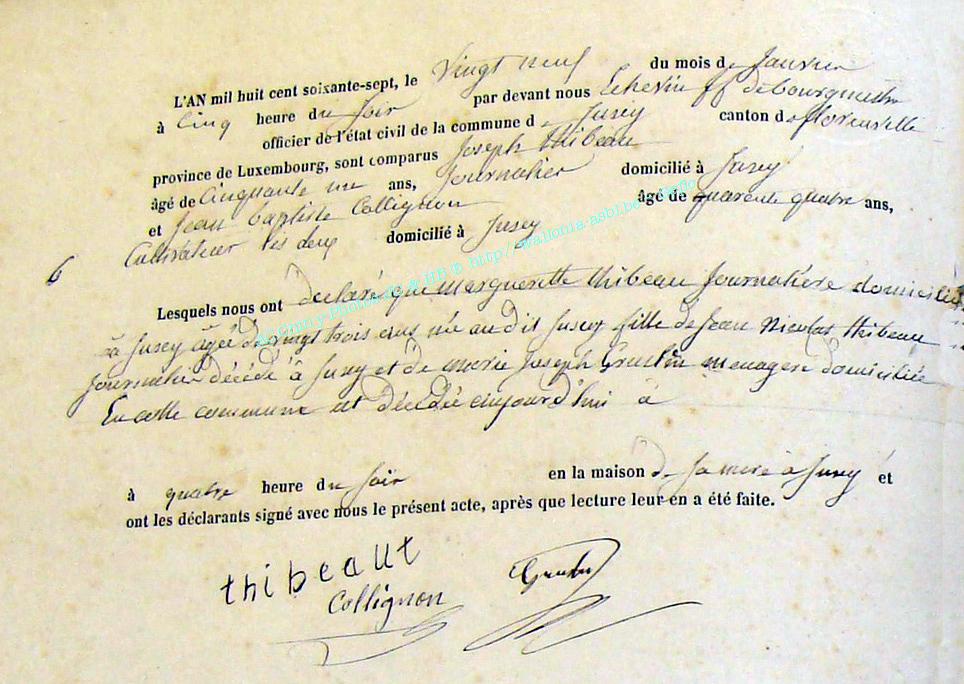 L'AN mil huit cent soixante-sept, le vingt neuf du mois de Janvier
à Cinq heure du soir par devant nous Echevin ff de bourgmestre
officier de l'état civil de la commune de Jusey canton de florenville
province de Luxembourg, sont comparus Joseph thibeau
âgé de Cinquante un ans, Journalier domicilié à Jusey
et Jean baptiste Collignon âgé de quarente quatre ans,
Cultivateur les deux domicilié à Jusey
6
Lesquels nous ont declaré que marguerette thibeau Journalière domiciliée
à Jusey âgée de vingt trois ans née au dit Jusey fille de Jean Nicolas thibeau
Journalier décédé à Jusey et de marie Joseph menagere domiciliée
En cette commune est décédée aujourd'hui à
à quatre heure du soir en la maison de sa mere à Jusey et
ont les déclarants signé avec nous le présent acte, après que lecture leur en a été faite.
thibeaut
Collignon